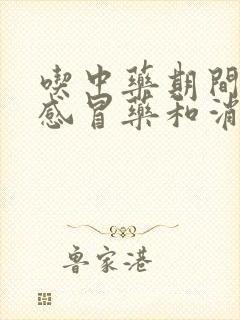 喫中藥期間
感冒藥和消
魯家港